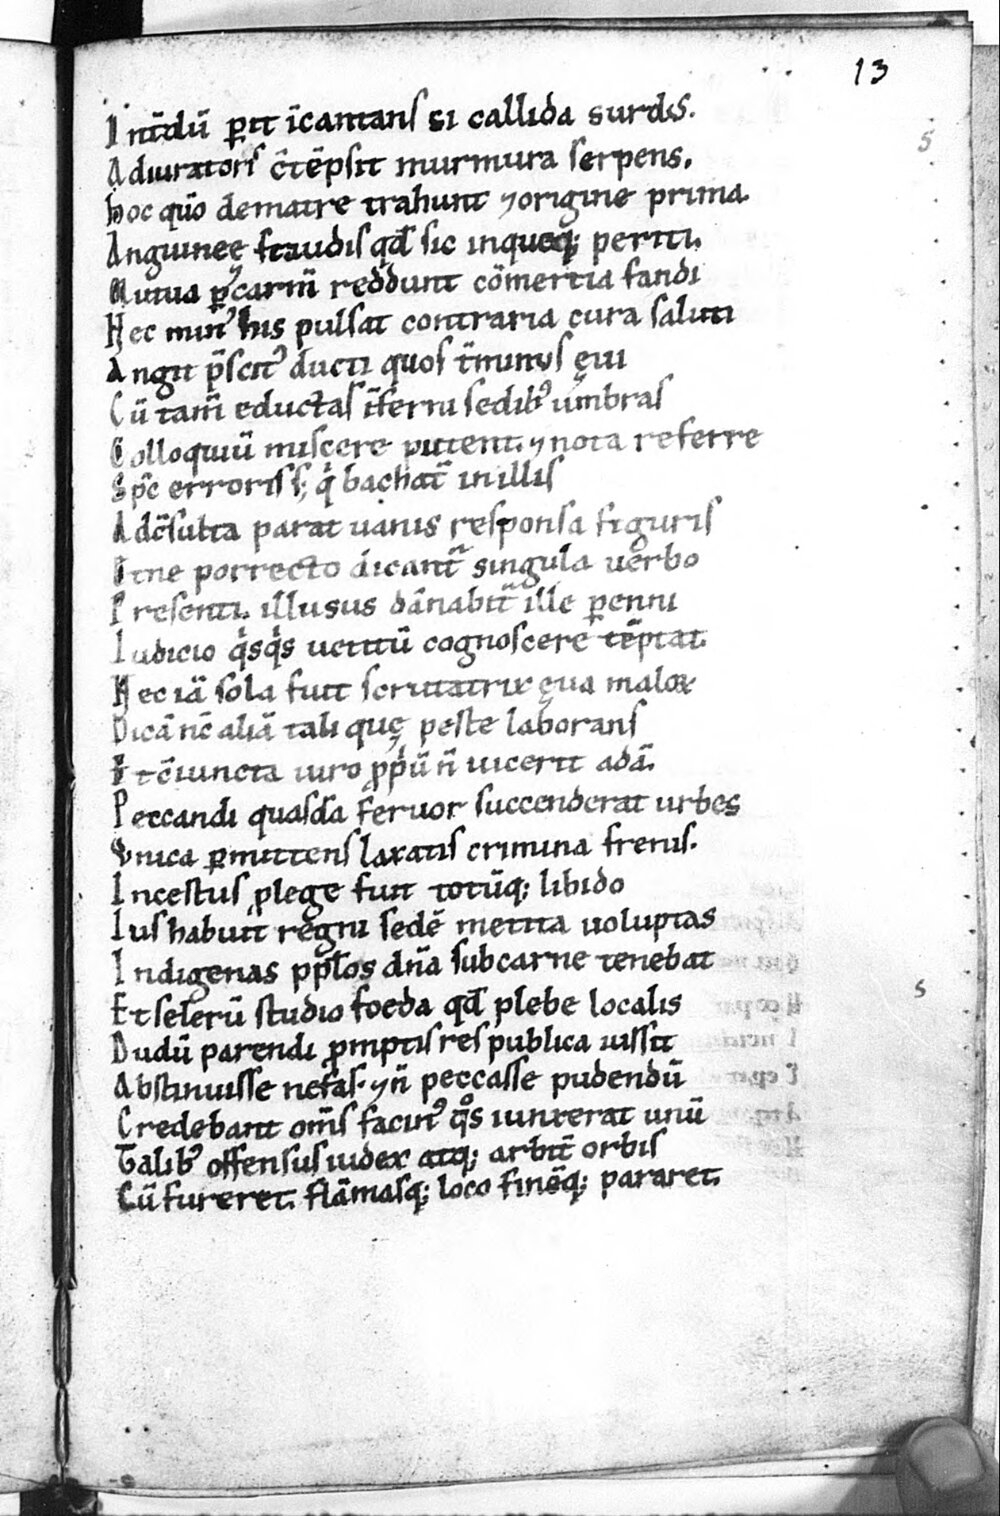 13
Int̄dū ꝑit īcantans si callida surdis.
Adiuratoris c̄tēpsit murmura serpens.
hoc qūo de matre trahunt ⁊ origine prima.
Anguineę fraudis qđ sic inqueq; periti.
Mutua ꝑ carm̄ reddunt cōmertia fandi
Hec minꝰ his pulsat contraria cura saluti
Angit p̄scitꝰ ducti quos t̄minus ęui
Cū tam̄ eductas īferni sedibꝰ umbras
Colloquiū miscere putent. ⁊ nota referre
Sp̄c erroris s; q bachat̄ in illis
Adc̄sulta parat uanis responsa figuris
Sine porrecto dicant̄ singula uerbo
Presenti. illusus dānabit̄ ille ꝑenni
Iudicio qͥsqͥs uetitū cognoscere tēptat.
Nec iā sola fuit scrutatrix ęua maloꝝ
Dicā nc̄ aliā tali quę peste laborans
Vt c̄iuncta uiro ꝓpͥū n̄ uicerit adā.
Peccandi quasdā feruor succenderat urbes
Vnica ꝑmittens laxatis crimina frenis.
Incestus ꝓ lege fuit totūq; libido
Ius habuit regni sedē metita uoluptas
Indigenas pp̄los dn̄a sub carne tenebat
Et selerū studio foeda qđ plebe localis
Dudū parendi ꝓmptis res publica iussit
Abstinuisse nefas. ⁊ n̄ peccasse pudendū
Credebant om̄s facinꝰ qͦs iunxerat unū
Talibꝰ offensus iudex atq; arbit̄ orbis
Cū fureret. flāmasq; loco finēq; pararet.
s
s